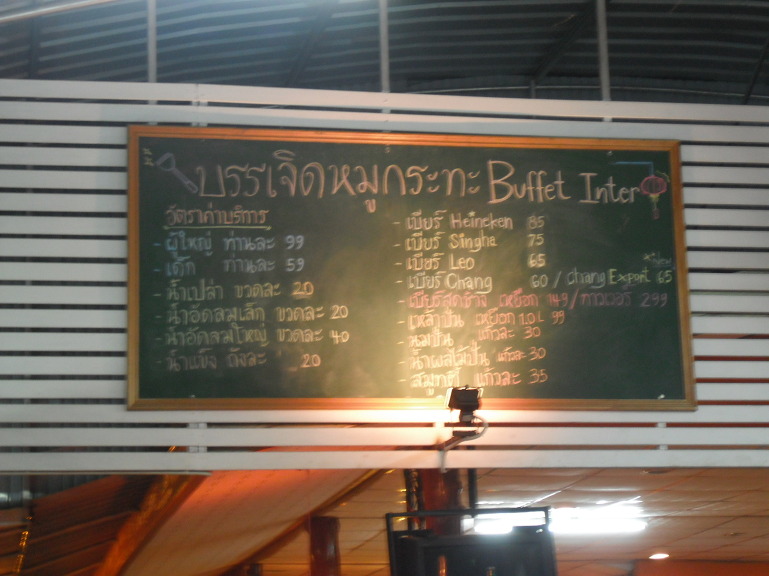 บรรเจิดหมูกระทะ Buffet Inter
อัตราค่าบริการ
- ผู้ใหญ่ ท่านละ 99
- เด็ก ท่านละ 59
- น้ำเปล่า ขวดละ 20
- น้ำอัดลมเล็ก ขวดละ 20
- น้ำอัดลมใหญ่ ขวดละ 40
- น้ำแข็ง ถังละ 20
- เบียร์ Heineken 85
- เบียร์ Singha 75
- เบียร์ Leo 65
- เบียร์ Chang 60 / chang Export 65
*New
- เบียร์สดช้าง เหยือก 149 / ทาวเวอร์ 299
- เหล้าปั่น เหยือก 1.0 L 99
- นมปั่น แก้วละ 30
- น้ำผลไม้ปั่น แก้วละ 30
- สมูทตี้ แก้วละ 35